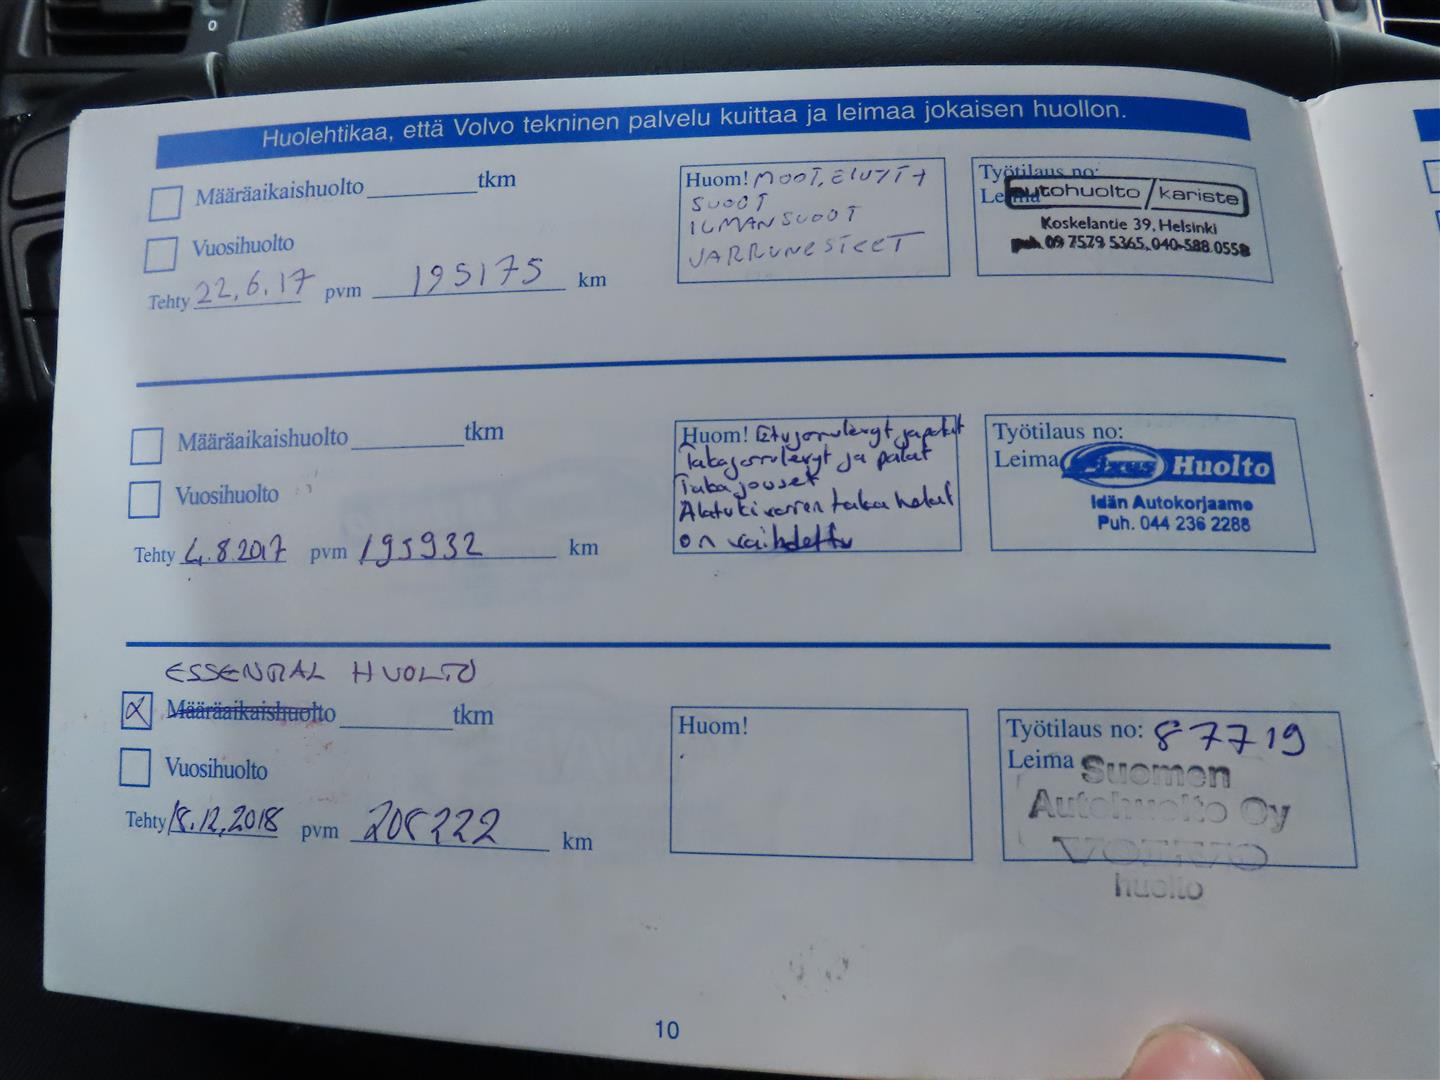 Huolehtikaa, että Volvo tekninen palvelu kuittaa ja leimaa jokaisen huollon.
Määräaikaishuolto tkm
Vuosihuolto
Tehty 22.6.17 pvm 195175 km
Huom! MOOT,
SUOT
ILMANSUOT
JARRUNESTEET
Työtilaus no:
Leima
autohuolto/kariste
Koskelantie 39, Helsinki
puh. 09 7579 5365, 040-588 0558
Määräaikaishuolto tkm
Vuosihuolto
Tehty 4.8.2017 pvm 195932 km
Huom! Etujarrulevyt ja palat
Takajarrulevyt ja palat
Taka jouset
Alatukivarren taka helat
on vaihdettu
Työtilaus no:
Leima
Fixus Huolto
Idän Autokorjaamo
Puh. 044 236 2288
ESSENTIAL HUOLTO
Määräaikaishuolto tkm
Vuosihuolto
Tehty 18.12.2018 pvm 208222 km
Huom!
Työtilaus no: 87719
Leima
Suomen
Autohuolto Oy
VOLVO
huolto
10